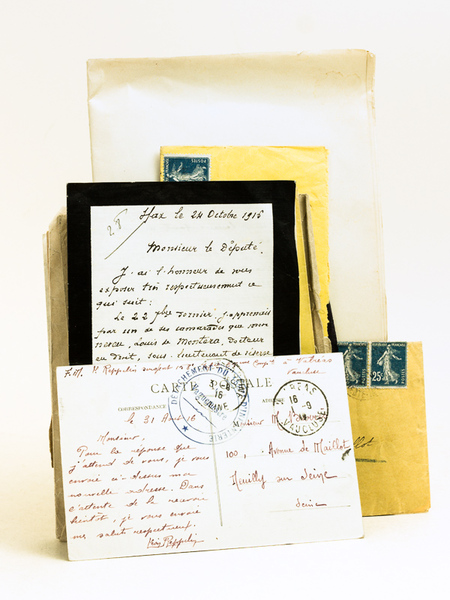 Sfax le 24 Octobre 1915
Monsieur le Député.
J'ai l'honneur de vous
exposer très respectueusement ce
qui suit :
Le 22 7bre dernier j'apprenais
par un de ses camarades que mon
neveu, Louis de Montera, docteur
en droit, sous-lieutenant de réserve
F.M.
Vaucluse
CARTE POSTALE
CORRESPONDANCE
le 31 Août 16
Monsieur,
Pour la réponse que
j'attend de vous, je vous
envoie ci-dessous mon
nouvelle adresse. Dans
l'attente de la recevoir
bientôt, je vous envoie
mes saluts respectueux.
100, Avenue de Maillot
Neuilly sur Seine
Seine
DÉTACHEMENT DU
16
VAUCLUSE
16 -9
25c